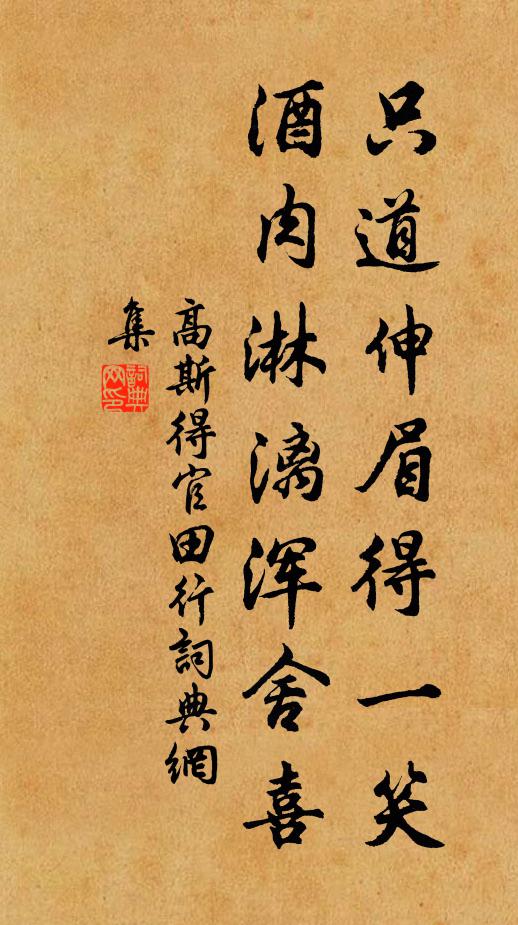 只道伸眉得一笑
酒肉淋漓浑舍喜
高斯得官田行詞典網
集
詞典网印